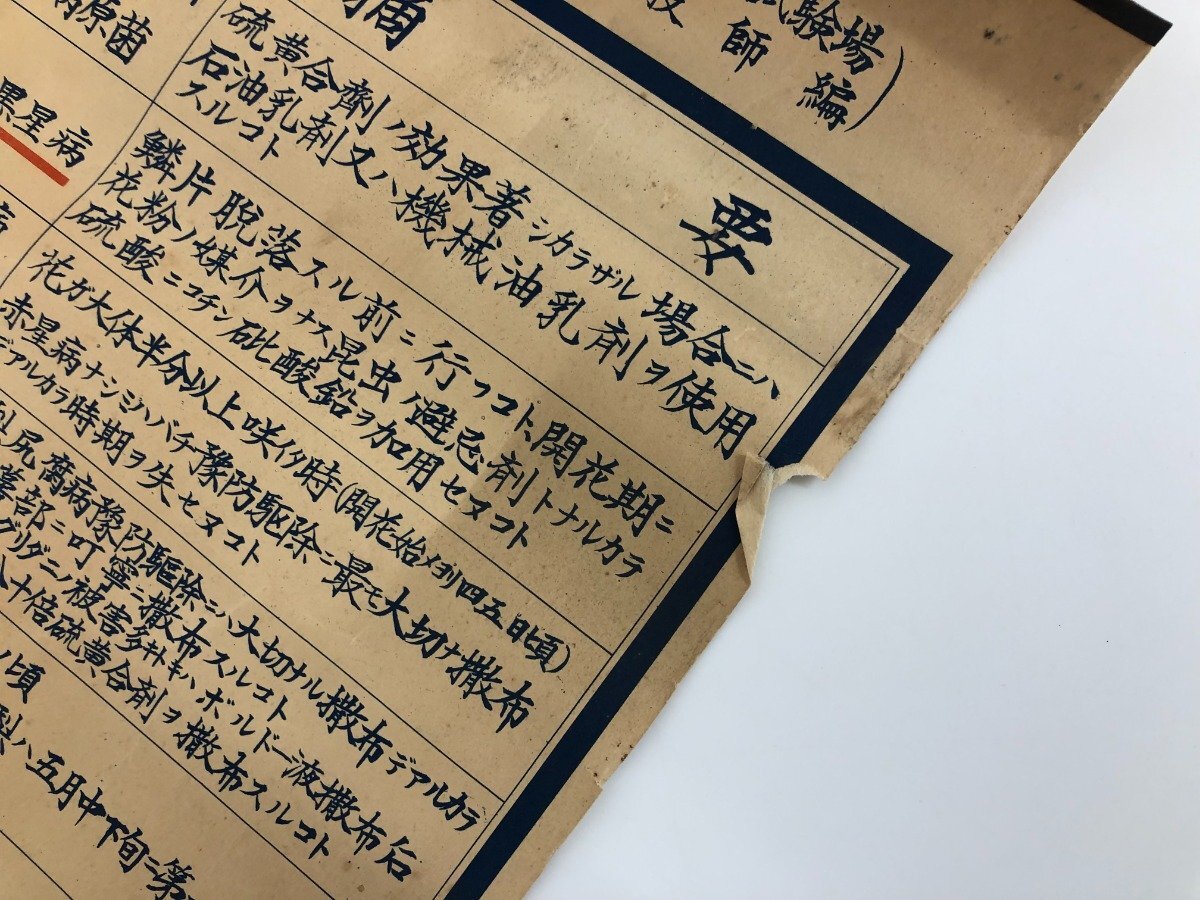 試験場)
師 編
摘 要
硫黄合劑ノ効果著シカラザル場合ニハ
石油乳剤又ハ機械油乳剤ヲ使用
スルコト
鱗片脱落スル前ニ行フコト、開花期ニ
花粉ノ媒介ヲナス昆虫ノ避忌剤トナルカラ
硫酸ニコチン砒酸鉛ヲ加用セヌコト
花ガ大体半分以上咲イタ時(開花始メヨリ四五日頃)
赤星病ナシミハバチ豫防駆除ニ最モ大切ナ撒布
デアルカラ時期ヲ失セヌコト
尻腐病豫防駆除ニハ大切ナル撒布デアルカラ
蕚部ニ叮寧ニ撒布スルコト
グリダニノ被害多キトキハボルドー液撒布后
八十倍硫黄合剤ヲ撒布スルコト
ノ頃
梨ハ五月中下旬ニ第
病原菌
黒星病
病